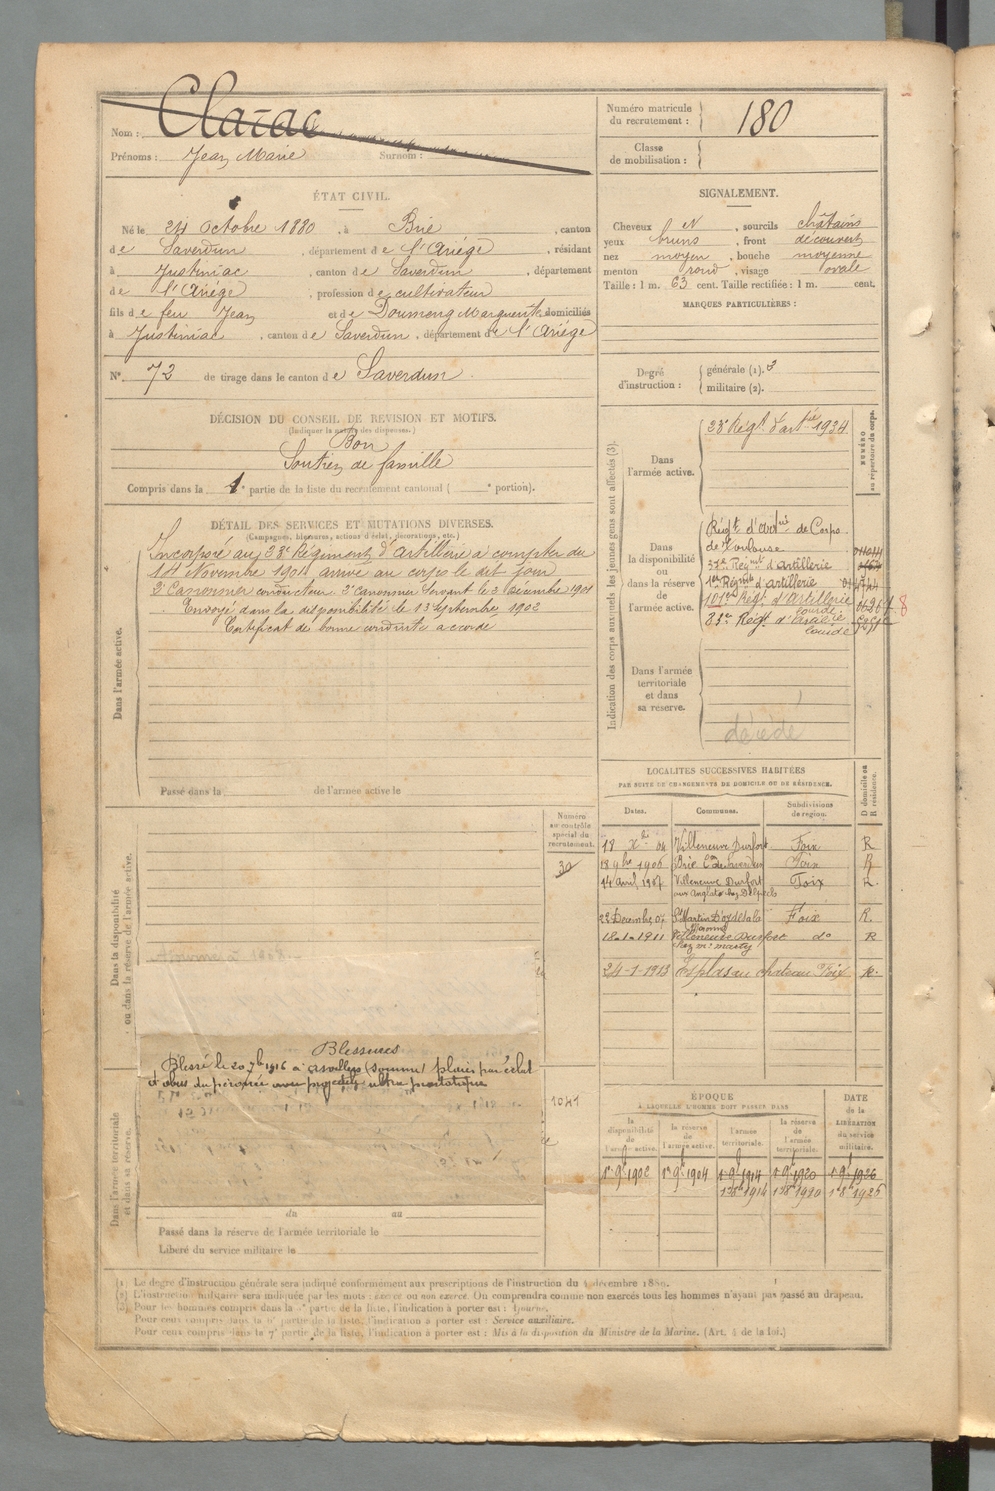 Nom : Clarac
Prénoms : Jean Marie Surnom :
Numéro matricule du recrutement : 180
Classe de mobilisation :
ÉTAT CIVIL.
Né le 24 Octobre 1880, à Brie, canton
de Saverdun, département de l'Ariège, résidant
à Justiniac, canton de Saverdun, département
de l'Ariège, profession de cultivateur
fils de feu Jean et de Doumeng Marguerite domiciliés
à Justiniac, canton de Saverdun, département de l'Ariège
N° 72 de tirage dans le canton de Saverdun.
SIGNALEMENT.
Cheveux N, sourcils châtains
yeux bruns, front découvert
nez moyen, bouche moyenne
menton rond, visage ovale
Taille : 1 m. 63 cent. Taille rectifiée : 1 m. cent.
MARQUES PARTICULIÈRES :
Degré d'instruction : générale (1). 3
militaire (2).
DÉCISION DU CONSEIL DE REVISION ET MOTIFS.
(Indiquer la nature des dispenses.)
Bon
Soutien de famille
Compris dans la 1e partie de la liste du recrutement cantonal ( e portion).
DÉTAIL DES SERVICES ET MUTATIONS DIVERSES.
(Campagnes, blessures, actions d'éclat, décorations, etc.)
Incorporé au 23e Régiment d'Artillerie à compter du
14 Novembre 1901 arrivé au corps le dit jour
2e Canonnier conducteur 2e canonnier Servant le 3 Décembre 1901
Envoyé dans la disponibilité le 13 Septembre 1902
Certificat de bonne conduite accordé
Dans l'armée active.
Passé dans la de l'armée active le
Indication des corps auxquels les jeunes gens sont affectés (3).
NUMÉRO au répertoire du corps.
Dans l'armée active.
23e Régt d'artie 1934
Dans la disponibilité ou dans la réserve de l'armée active.
Régt d'artie de Corps
de Toulouse
57e Régiment d'Artillerie
1er Régmt d'artillerie
101e Régt d'Artillerie
lourde
83e Régt d'artillerie
lourde
8
Dans l'armée territoriale et dans sa réserve.
décédé
LOCALITÉS SUCCESSIVES HABITÉES
PAR SUITE DE CHANGEMENTS DE DOMICILE OU DE RÉSIDENCE.
Dates. Communes. Subdivisions de région. D domicile ou R résidence.
18 Xbre 04 Villeneuve Durfort Foix R
18 9bre 1906 Brie Con de Saverdun Foix R
14 avril 1907 Villeneuve Durfort Foix R.
22 Décembre 07 St Martin D'oydes Foix R.
18-1-1911 Villeneuve Durfort do R
chez Mr Marty
24-1-1913 Esplas au chateau Foix R.
Numéro au contrôle spécial du recrutement.
30
1041
Dans la disponibilité ou dans la réserve de l'armée active.
Blessures
Blessé le 20 7bre 1916 à (Somme) plaies par éclat
d'obus
Dans l'armée territoriale et dans sa réserve.
du au
Passé dans la réserve de l'armée territoriale le
Libéré du service militaire le
ÉPOQUE
A LAQUELLE L'HOMME DOIT PASSER DANS
la disponibilité de l'armée active. la réserve de l'armée active. l'armée territoriale. la réserve de l'armée territoriale. DATE de la LIBÉRATION du service militaire.
1er 9bre 1902 1er 9bre 1904 1er 9bre 1914 1er 9bre 1920 1er 9bre 1926
(1) Le degré d'instruction générale sera indiqué conformément aux prescriptions de l'instruction du 4 décembre 1889.
(2) L'instruction militaire sera indiquée par les mots : exercé ou non exercé. On comprendra comme non exercés tous les hommes n'ayant pas passé au drapeau.
(3) Pour les hommes compris dans la 5e partie de la liste, l'indication à porter est : Ajourné.
Pour ceux compris dans la 6e partie de la liste, l'indication à porter est : Service auxiliaire.
Pour ceux compris dans la 7e partie de la liste, l'indication à porter est : Mis à la disposition du Ministre de la Marine. (Art. 4 de la loi.)